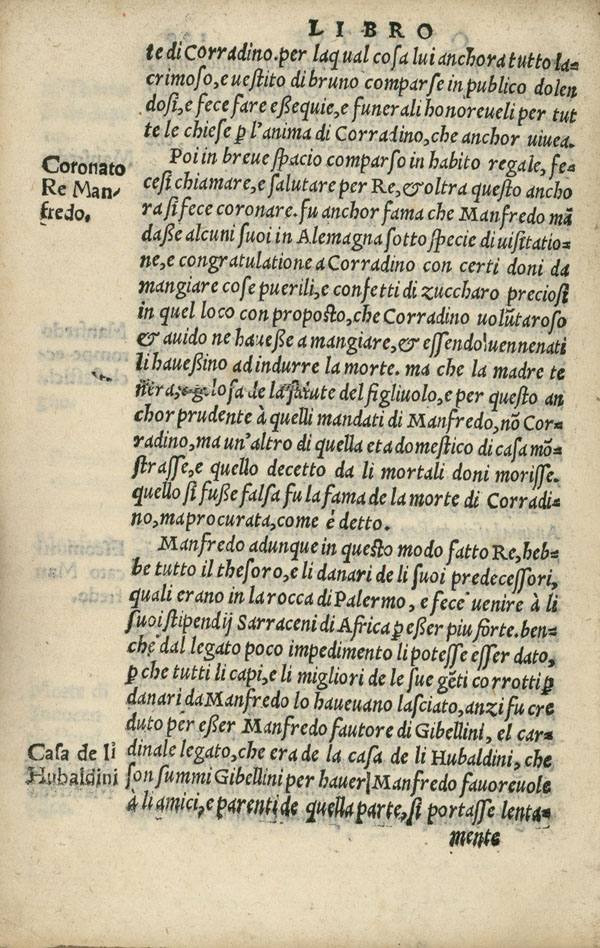 LIBRO
te di Corradino. per laqual cosa lui anchora tutto la-
crimoso, e uestito di bruno comparse in publico dolen
dosi, e fece fare eßequie, e funerali honoreueli per tut
te le chiese ꝑ l'anima di Corradino, che anchor uiuea.
Coronato
Re Man-
fredo.
Poi in breue spacio comparso in habito regale, fe-
cesi chiamare, e salutare per Re, & oltra questo ancho
ra si fece coronare. fu anchor fama che Manfredo mã
daße alcuni suoi in Alemagna sotto specie di uisitatio-
ne, e congratulatione a Corradino con certi doni da
mangiare cose puerili, e confetti di zuccharo preciosi
in quel loco con proposto, che Corradino uolũtaroso
& auido ne haueße a mangiare, & essendo uennenati
li haueßino ad indurre la morte. ma che la madre te
nera, e gelosa de la salute del figliuolo, e per questo an
chor prudente à quelli mandati di Manfredo, nõ Cor-
radino, ma un'altro di quella eta domestico di casa mõ-
strasse, e quello decetto da li mortali doni morisse.
quello si fuße falsa fu la fama de la morte di Corradi-
no, ma procurata, come é detto.
Manfredo adunque in questo modo fatto Re, heb-
be tutto il thesoro, e li danari de li suoi predecessori,
quali erano in la rocca di Palermo, e fece uenire à li
suoi stipendij Sarraceni di Africa ꝑ eßer piu forte. ben-
che dal legato poco impedimento li potesse esser dato,
ꝑ che tutti li capi, e li migliori de le sue gẽti corrotti ꝑ
danari da Manfredo lo haueuano lasciato, anzi fu cre
duto per eßer Manfredo fautore di Gibellini, el car-
Casa de li
Hubaldini
dinale legato, che era de la casa de li Hubaldini, che
son summi Gibellini per hauer Manfredo fauoreuole
à li amici, e parenti de quella parte, si portasse lenta-
mente